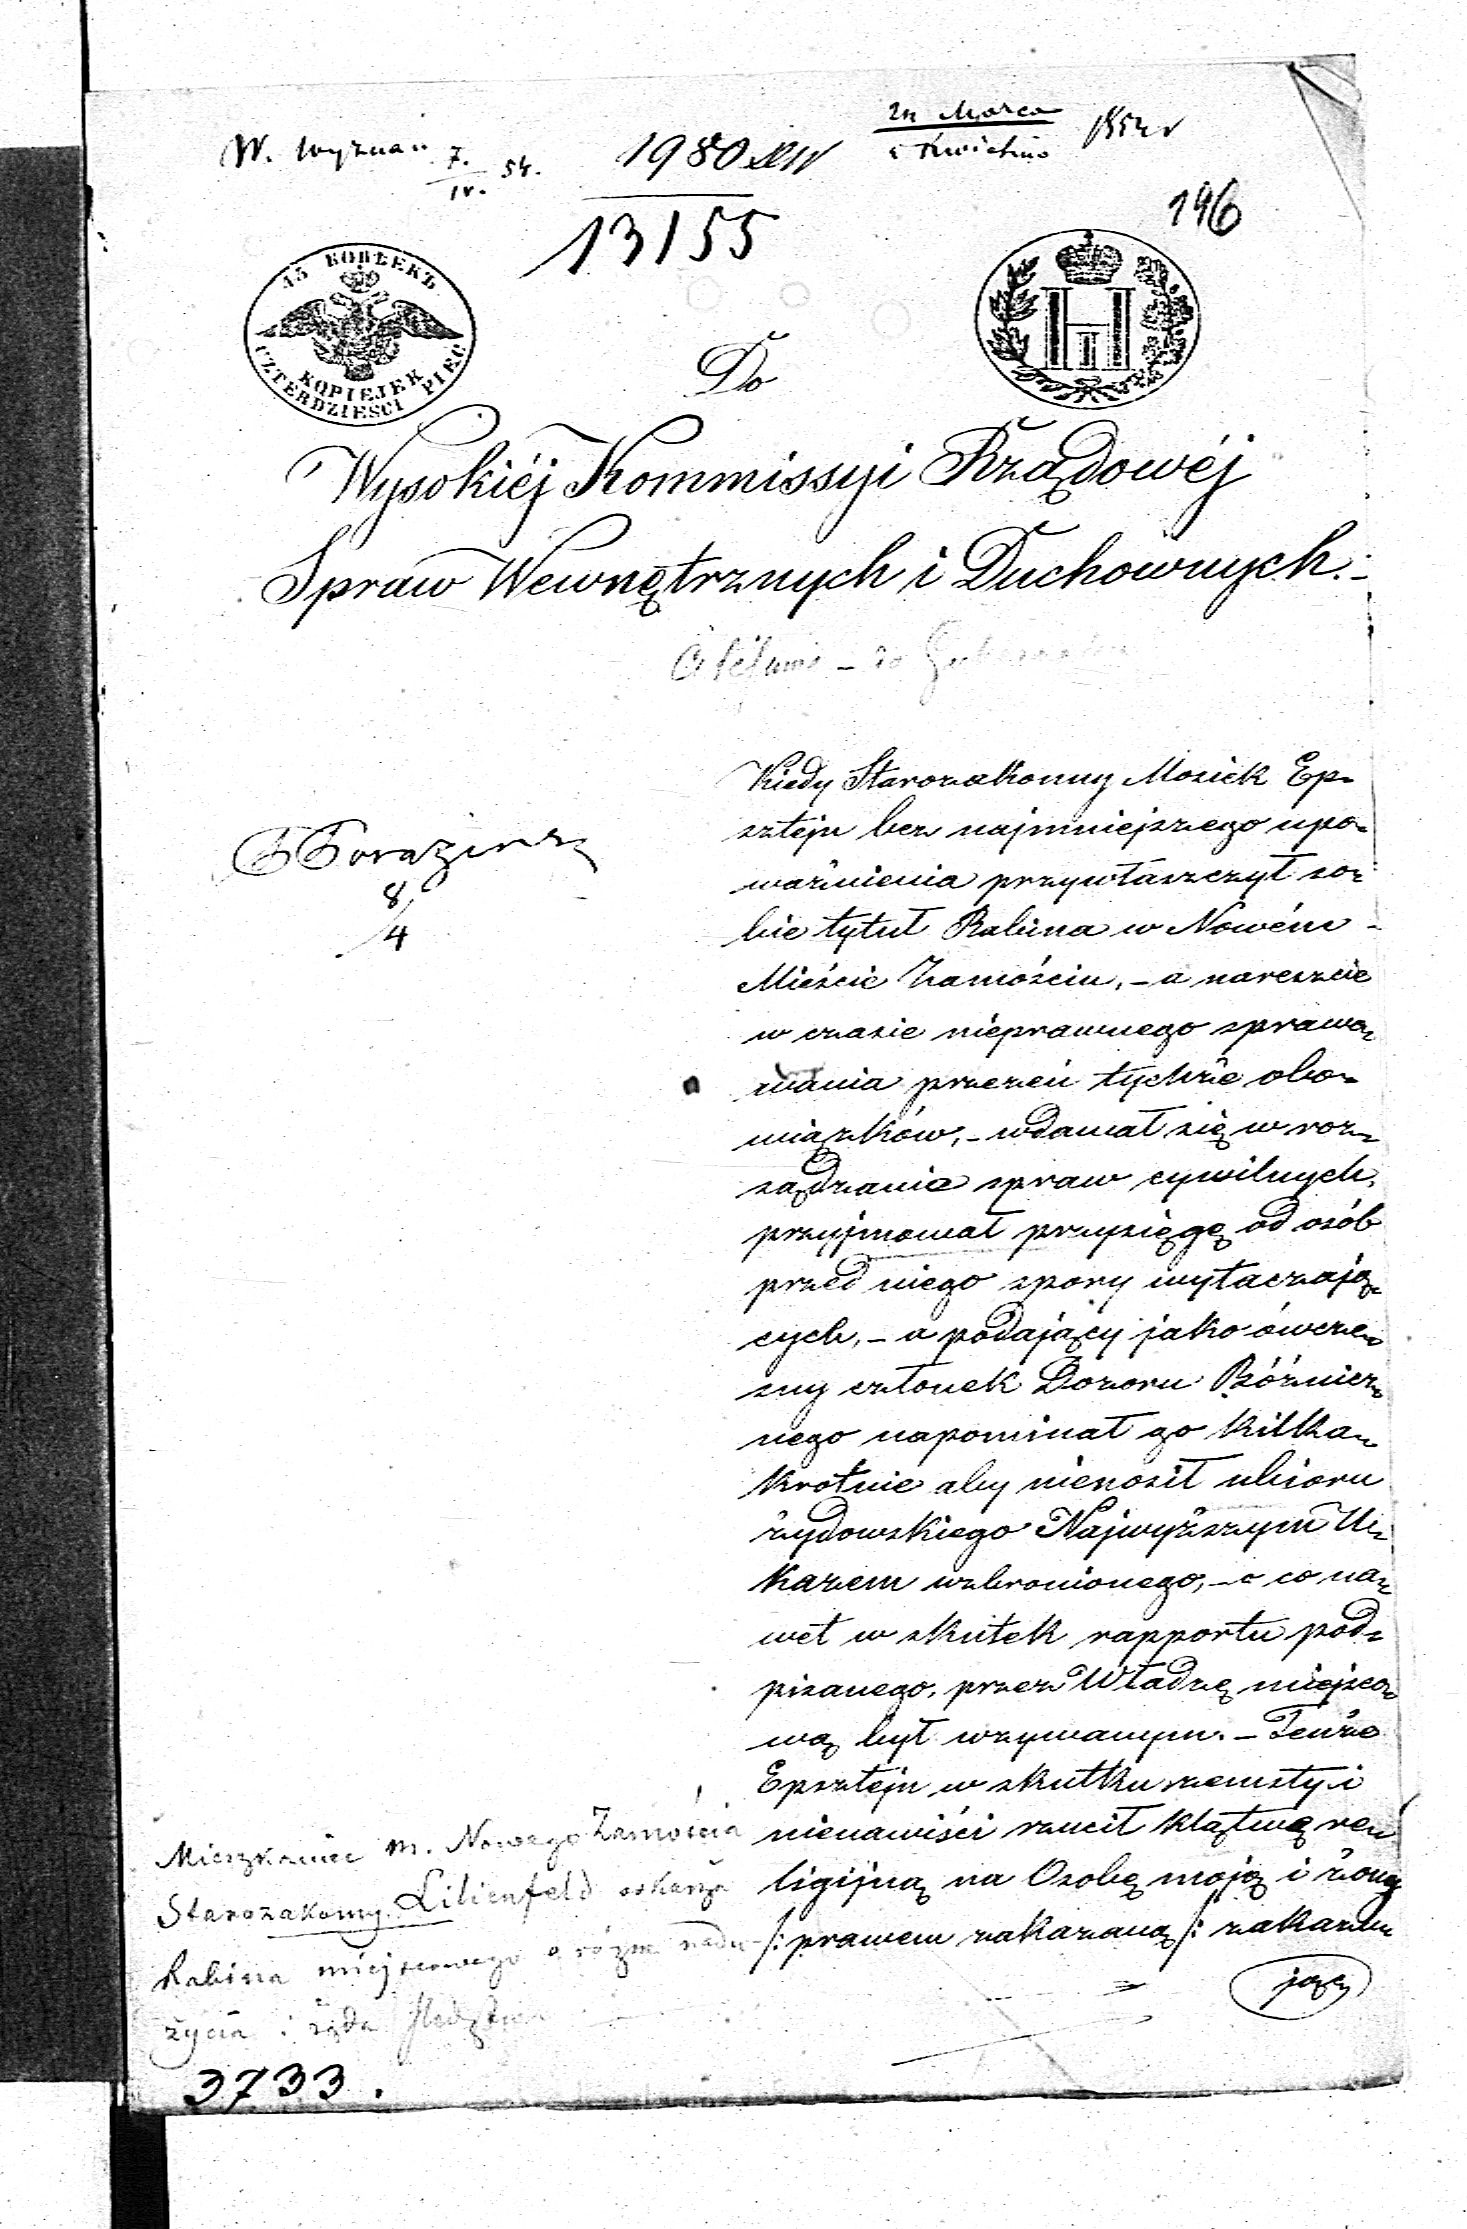 W. Wyznań 7. 54.
IV.
1980
13155
24 Marca 1854 r
5 Kwietnia
146
45 КОПѢЕКЪ
KOPIEJEK
CZTERDZIESCI PIĘC
H
Do
Wysokiéj Kommissyi Rządowéj
Spraw Wewnętrznych i Duchownych.-
Kiedy Starozakonny Mosiek Ep-
sztejn bez najmniejszego upo-
ważnienia przywłaszczył so-
bie tytuł Rabina w Nowém
Mieście Zamościu, - a nareszcie
w czasie nieprawnego sprawo-
wania przezeń tychże obo-
wiązków, - wdawał się w roz-
sądzanie spraw cywilnych,
przyjmował przysięgę od osób
przed niego spory wytaczają-
cych, - a podający jako ówcze-
sny członek Dozoru Bóżnicz-
nego napominał go kilka-
krotnie aby nienosił ubioru
żydowskiego Najwyższym U-
kazem wzbronionego, - o co na-
wet w skutek rapportu pod-
pisanego, przez Władzę miejsco-
wą był wzywanym. - Tenże
Epsztejn w skutku zemsty i
nienawiści rzucił klątwę re-
ligijną na Osobę moją i żony
/: prawem zakazaną /: zakazu-
jąc
8/4
Mieszkaniec m. Nowego Zamościa
Starozakonny Lilienfeld oskarża
Rabina miejscowego o różne nadu-
życia i żąda śledztwa
3733.